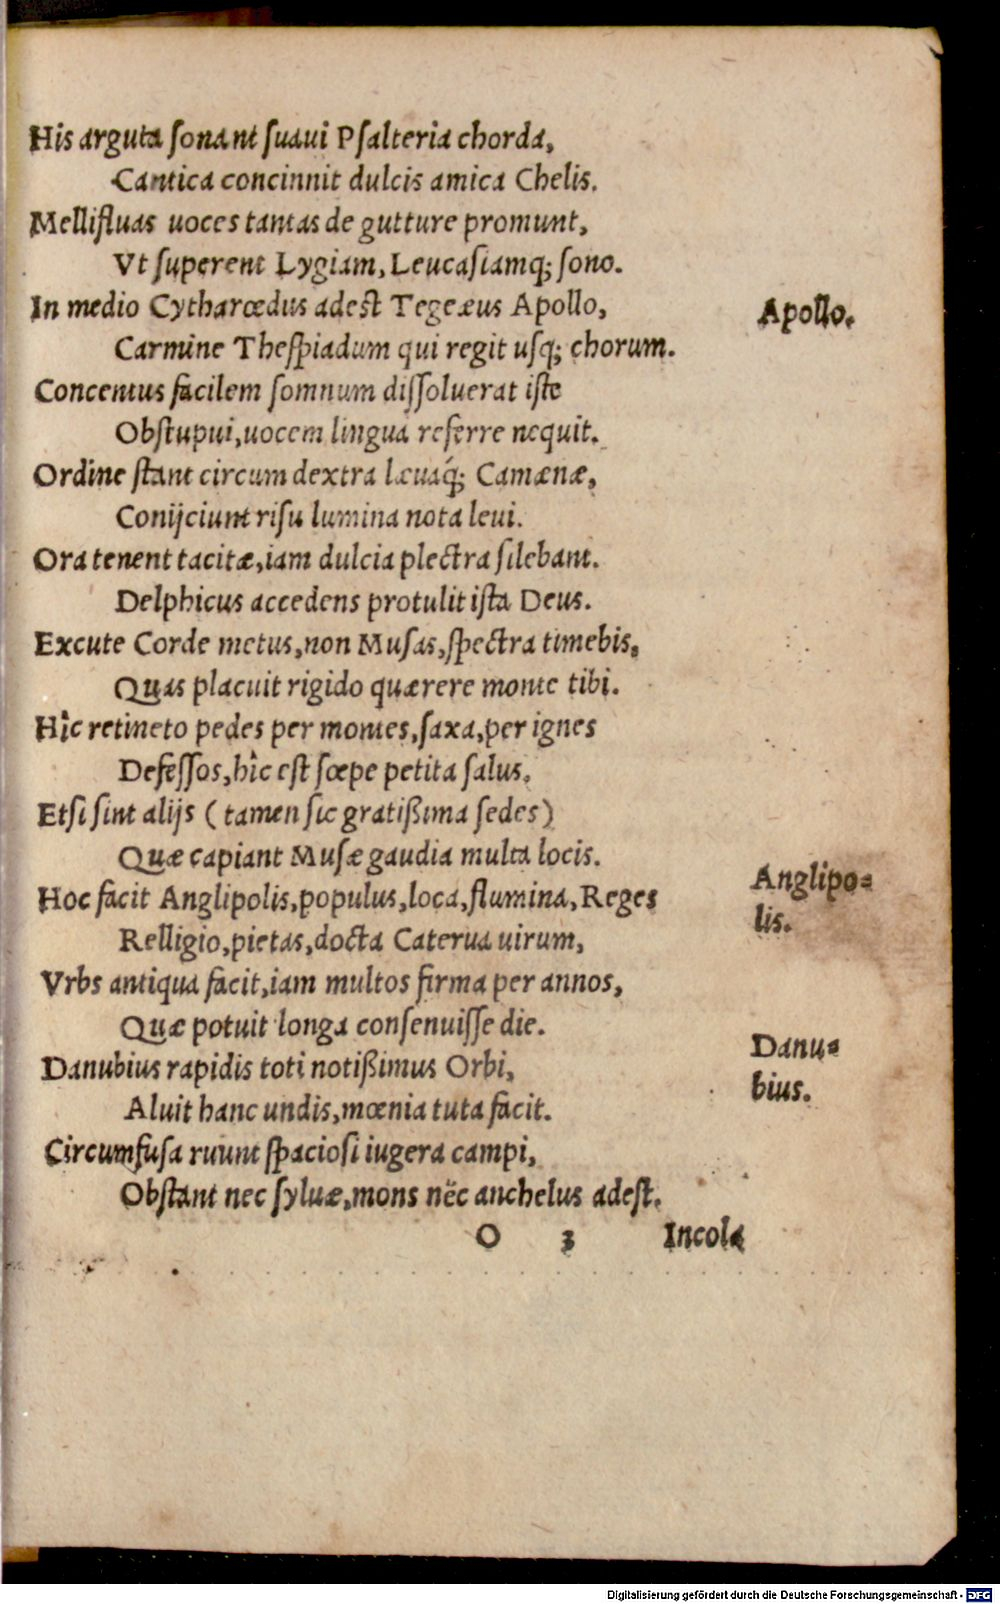 His arguta ſonant ſuaui Pſalteria chorda,
Cantica concinnit dulcis amica Chelis.
Mellifluas uoces tantas de gutture promunt,
Vt ſuperent Lygiam, Leucaſiamq; ſono.
In medio Cytharœdus adeſt Tegeæus Apollo,
Apollo.
Carmine Theſpiadum qui regit uſq; chorum.
Concentus facilem ſomnum diſſoluerat iſte
Obſtupui, uocem lingua referre nequit.
Ordine ſtant circum dextra læuaq́; Camænæ,
Conijciunt riſu lumina nota leui.
Ora tenent tacitæ, iam dulcia plectra ſilebant.
Delphicus accedens protulit iſta Deus.
Excute Corde metus, non Muſas, ſpectra timebis,
Quas placuit rigido quærere monte tibi.
Hîc retineto pedes per montes, ſaxa, per ignes
Defeſſos, hîc eſt ſœpe petita ſalus.
Etſi ſint alijs (tamen ſic gratißima ſedes)
Quæ capiant Muſæ gaudia multa locis.
Hoc facit Anglipolis, populus, loca, flumina, Reges
Anglipo-
lis.
Relligio, pietas, docta Caterua uirum,
Vrbs antiqua facit, iam multos firma per annos,
Quæ potuit longa conſenuiſſe die.
Danubius rapidis toti notißimus Orbi,
Danu-
bius.
Aluit hanc undis, mœnia tuta facit.
Circumfuſa ruunt ſpacioſi iugera campi,
Obſtant nec ſyluæ, mons nĕc anchelus adeſt.
O 3 Incolæ
Digitalisierung gefördert durch die Deutsche Forschungsgemeinschaft - DFG